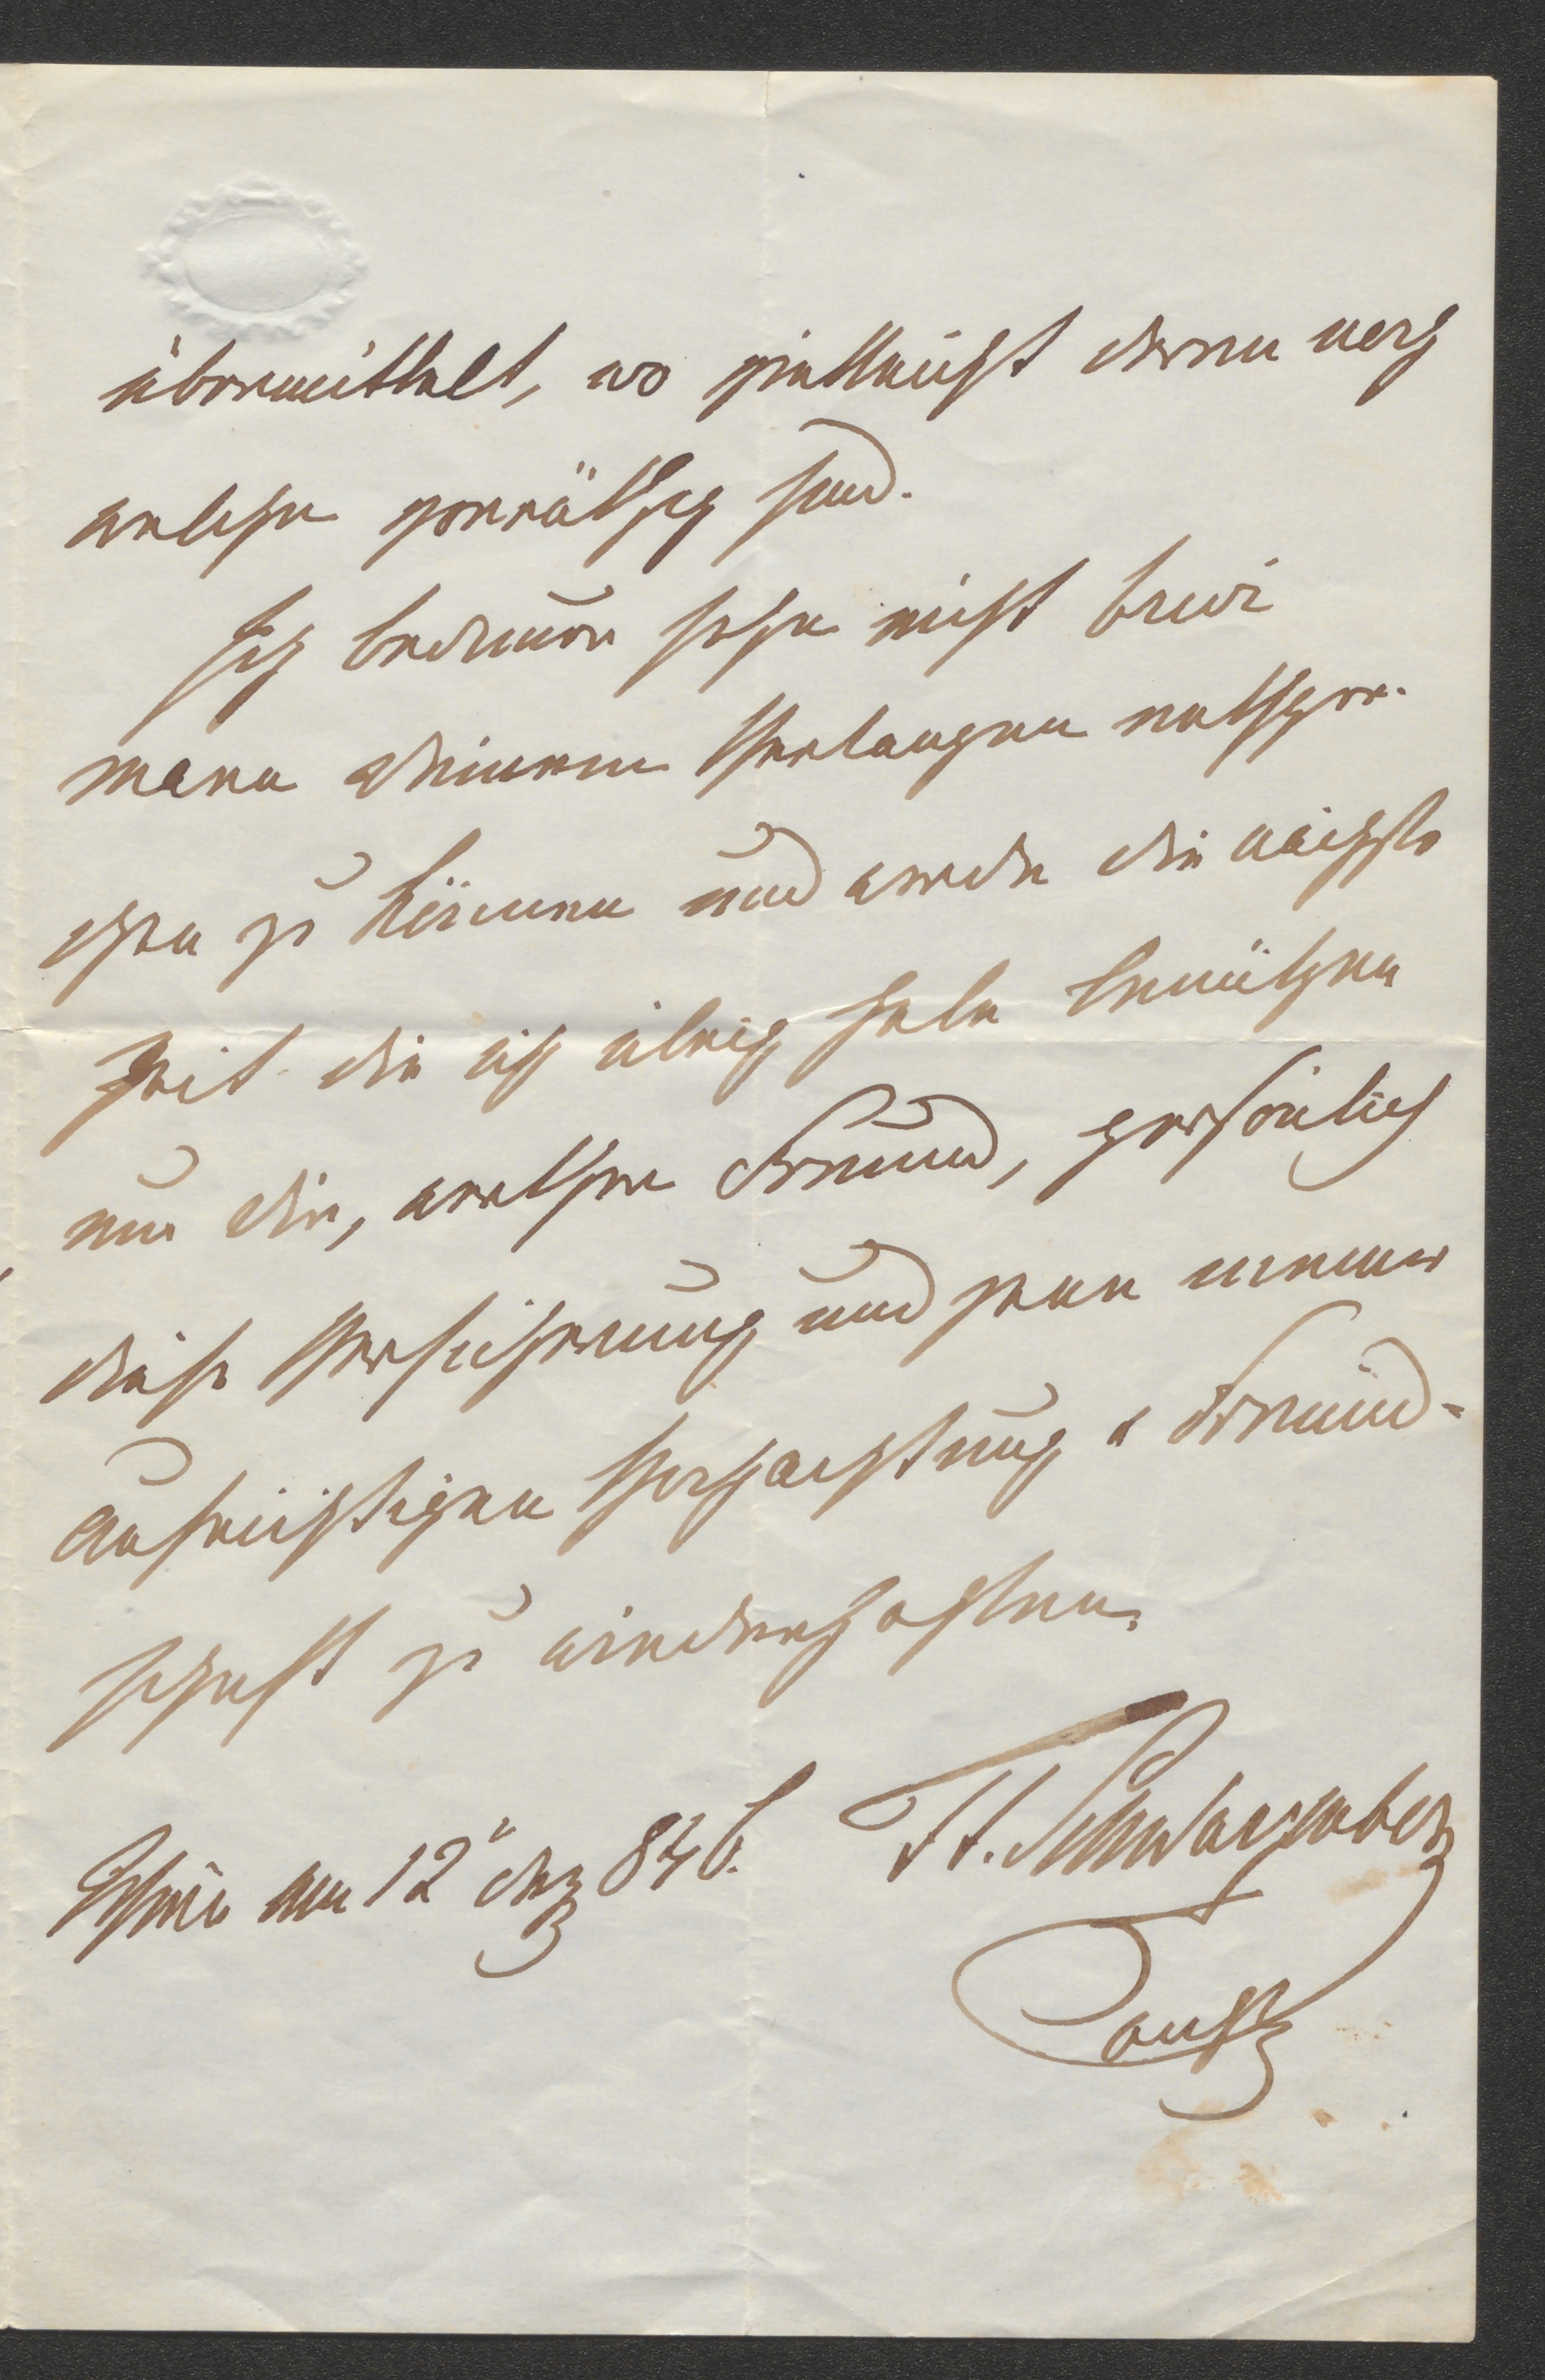 übermittelt, wo vielleicht deren noch
welche vorräthig sind.
Ich bedaure sehr nicht
Deinem Verlangen entspre-
chen zu können und werde die nächste
Zeit die ich übrig habe benützen
um Dir, werther Freund, persönlich
diese Versicherung und meiner
aufrichtigen Hochachtung & Freund-
schaft zu wiederhohlen.
am 12t Dez 846.
Schwarzenberg